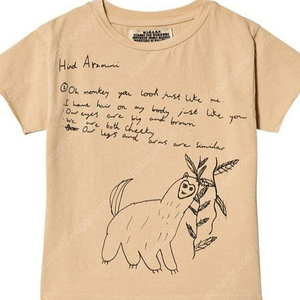 Oh monkey you look just like me
I have hair on my body just like you
Our eyes are big and brown
we are both cheeky
Our legs and arms are similar